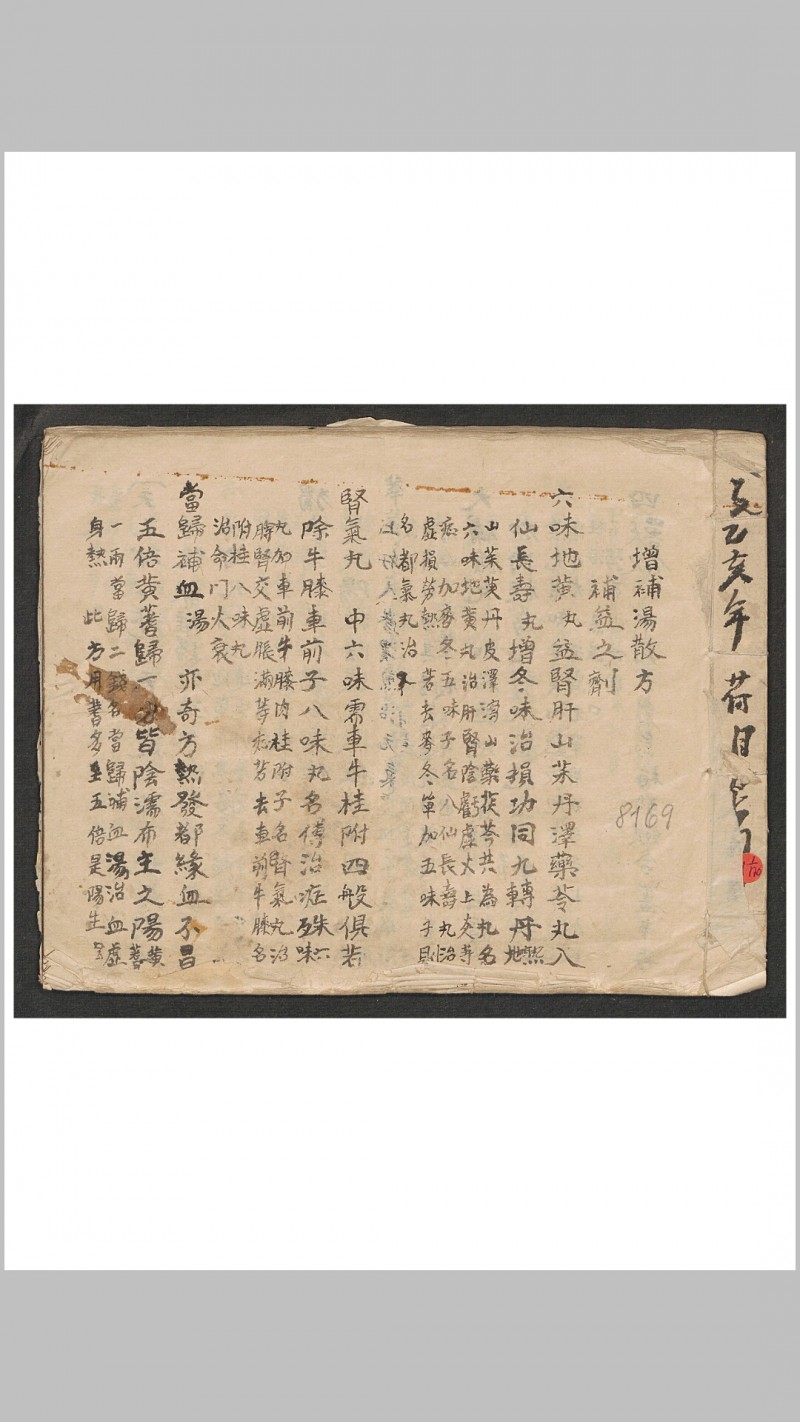 乙亥年
增補湯散方
補益之劑
六味地黄丸益腎肝山茱丹澤藥苓丸八
仙長壽丸增冬味治損功同九轉丹熟地
山茱萸丹皮澤瀉山藥茯苓共為丸名
六味地黄丸治肝腎陰虧虛火上炎等
症加麥冬五味子名八仙長壽丸治
虛損勞熱若去麥冬單加五味子則
名都氣丸治
腎氣丸 中六味需車牛桂附四般俱若
除牛膝車前子八味丸名傳治症殊六味
丸加車前牛膝肉桂附子名腎氣丸治
脾腎交虛脹滿等症若去車前牛膝名
附桂八味丸
治命門火衰
當歸補血湯 亦奇方熱發都緣血不昌
五倍黄蓍歸一分皆陰濡布主之陽黄蓍
一兩當歸二錢名當歸補血湯治血虛
身熱 此方用蓍多至五倍是陽生
8169